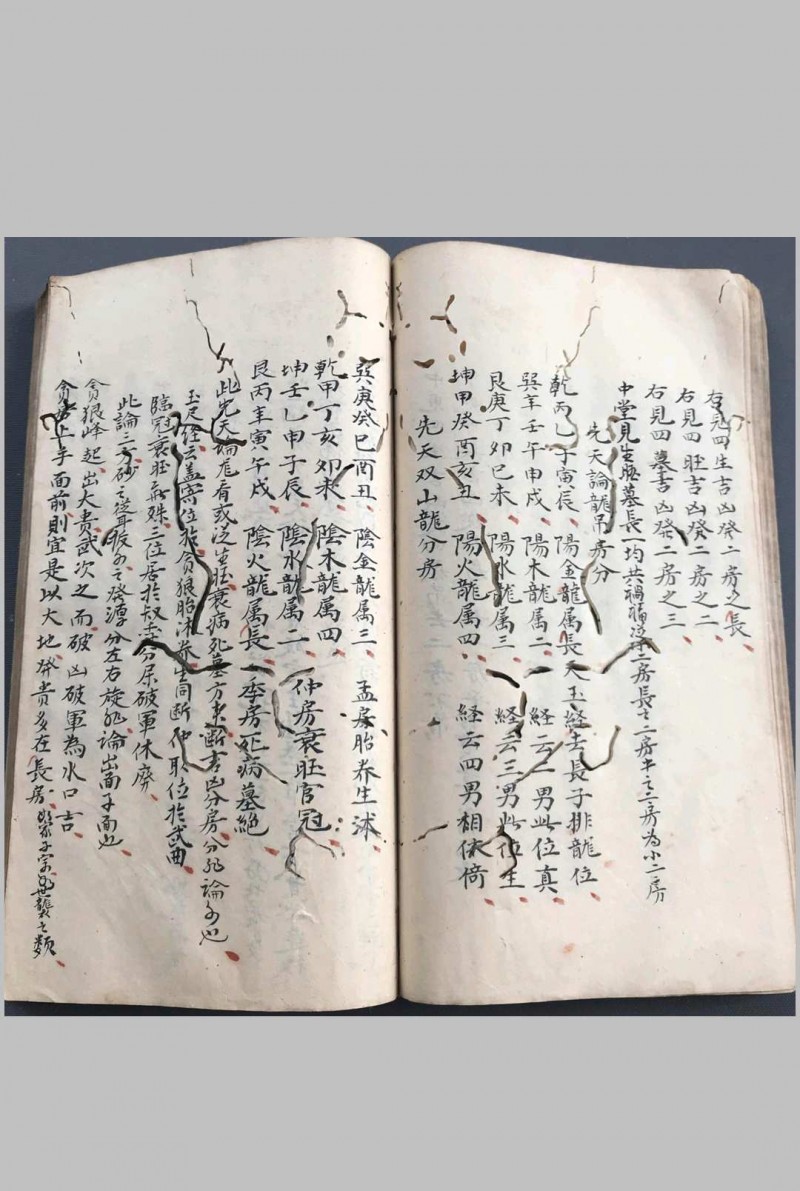 右見四生吉凶發二房之長
右見四旺吉凶發二房之二
右見四墓吉凶發二房之三
中堂見生旺墓長一均共禍福 二房長之二房中之二房為小二房
先天論龍吊房分
乾丙乙子寅辰、陽金龍属長天玉経去長子排龍位
巽辛壬午申戌、陽木龍属二 経云二男此位真
艮庚丁卯巳未、陽水龍属三 経云三男此位生
坤甲癸酉亥丑、陽火龍属四、 経云四男相依倚
先天双山龍分房
巽庚癸巳酉丑、陰金龍属三、孟房胎养生沐
乾甲丁亥卯未、陰木龍属四、
坤壬乙申子辰、陰水龍属二 仲房衰旺官冠
艮丙辛寅午戌、陰火龍属長 季房死病墓絶
此先天 看或 生旺衰病死墓方 断吉凶分房分 論 也
玉尺経云盖 位於貪狼胎沐养生同断仲取位於武曲
臨冠衰旺 殊三位居於 破軍休廢
此論三方砂之 之發源分左右旋 論出面子面也
貪狼峰起出大貴武次之而破凶破軍為水口吉
貪 上手面前則宜是以大地發貴多在長房 子 世襲之類